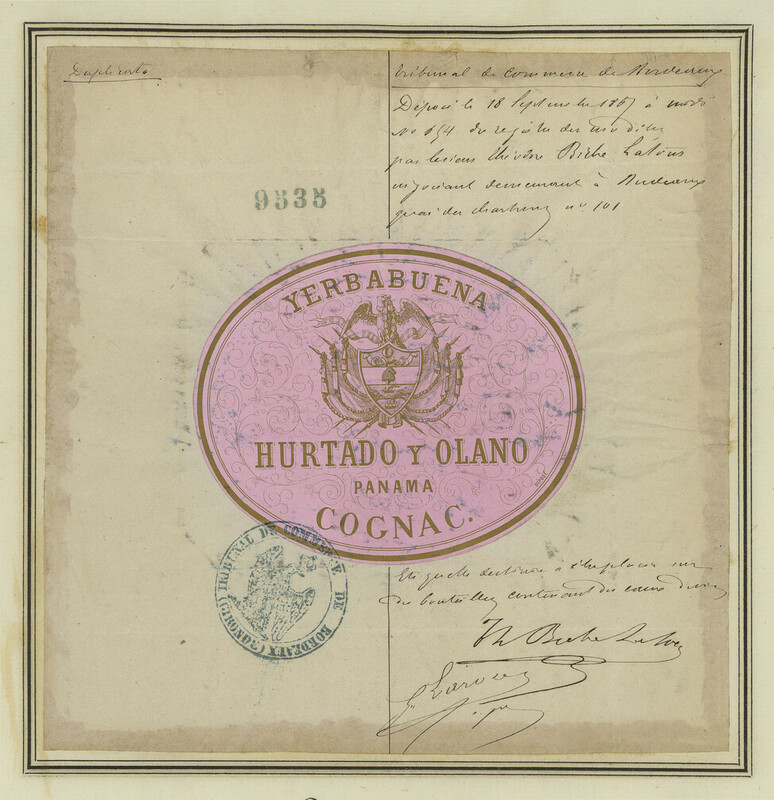 Duplicata
Tribunal de Commerce de Bordeaux
Déposé le 18 Septembre 1867 à midi
No 654 du registre des
par le sieur Théodore Biche Latour
négociant demeurant à Bordeaux
quai des Chartrons no. 101
9535
YERBABUENA
HURTADO Y OLANO
PANAMA
COGNAC.
TRIBUNAL DE COMMERCE DE BORDEAUX (GIRONDE)
Etiquette destinée à être placée sur
des bouteilles contenant des eaux de vie
Th Biche Latour